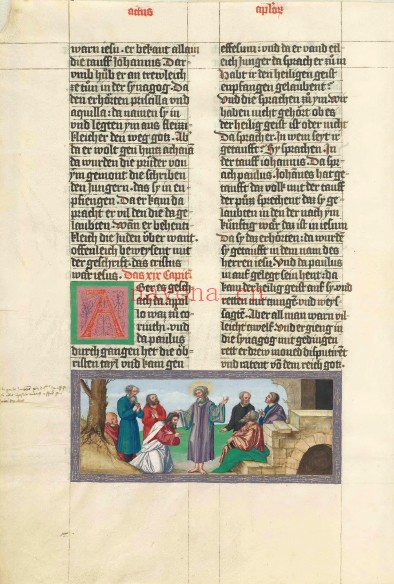 actus
aplor
warn iesu . er bekant allain
die tauff Johannis Dar
vmb hůb er an trewleich
ze tůn in der synagog . Da
den erhorten priscilla vnd
aquilla : da namen sy in
vnd legten ym aus fleizi
kleicher den weg gots . Als
da er wolt gen hintz achaia
da wurden die prüder von
ym gemont die schriben
den Jungern . das sy in en
pfiengen . Da er kam da
pracht er vil den die da ge
laubten Wān er behenti
kleich die Juden über want .
offenleich beweysent mit
der geschrift . das cristus
war iesus . Das xix Capitl
ber es gesch
ach da apol
lo was zu co
rinthi : vnd
da paulus
durch gangen het die ób
risten tayl vnd kam gen
effesum : vnd da er vand etl
eich Junger da sprach er zu in
Habt ir den heiligen geist
enpfangen gelaubent ?
Vnd die sprachen zu ym Wir
haben nicht gehort ob es
der heilig geist ist oder nicht
Da sprach er . In wem seit ir
getaufft ? Sy sprachen . In
der tauff iohannis . Da spr
ach paulus . Johānes hat ge
taufft das volk mit der tauff
der půzz sprechent das sy ge
laubten in den der nach ym
künftig wār das ist in iesum
Da sy da erhorten : da wurdē
sy getaufft in dem nam des
herren iesu . Vnd da paulus
in auf gelegt sein hent : da
kam der heilig geist auf sy vnd
retten mit zungē vnd weys
sagtē . Aber all man warn vil
leicht zwelf . Vnd er gieng in
die synagog mit gedingen
rett er drew moned disputirēt
vnd ratent von dem reich got .